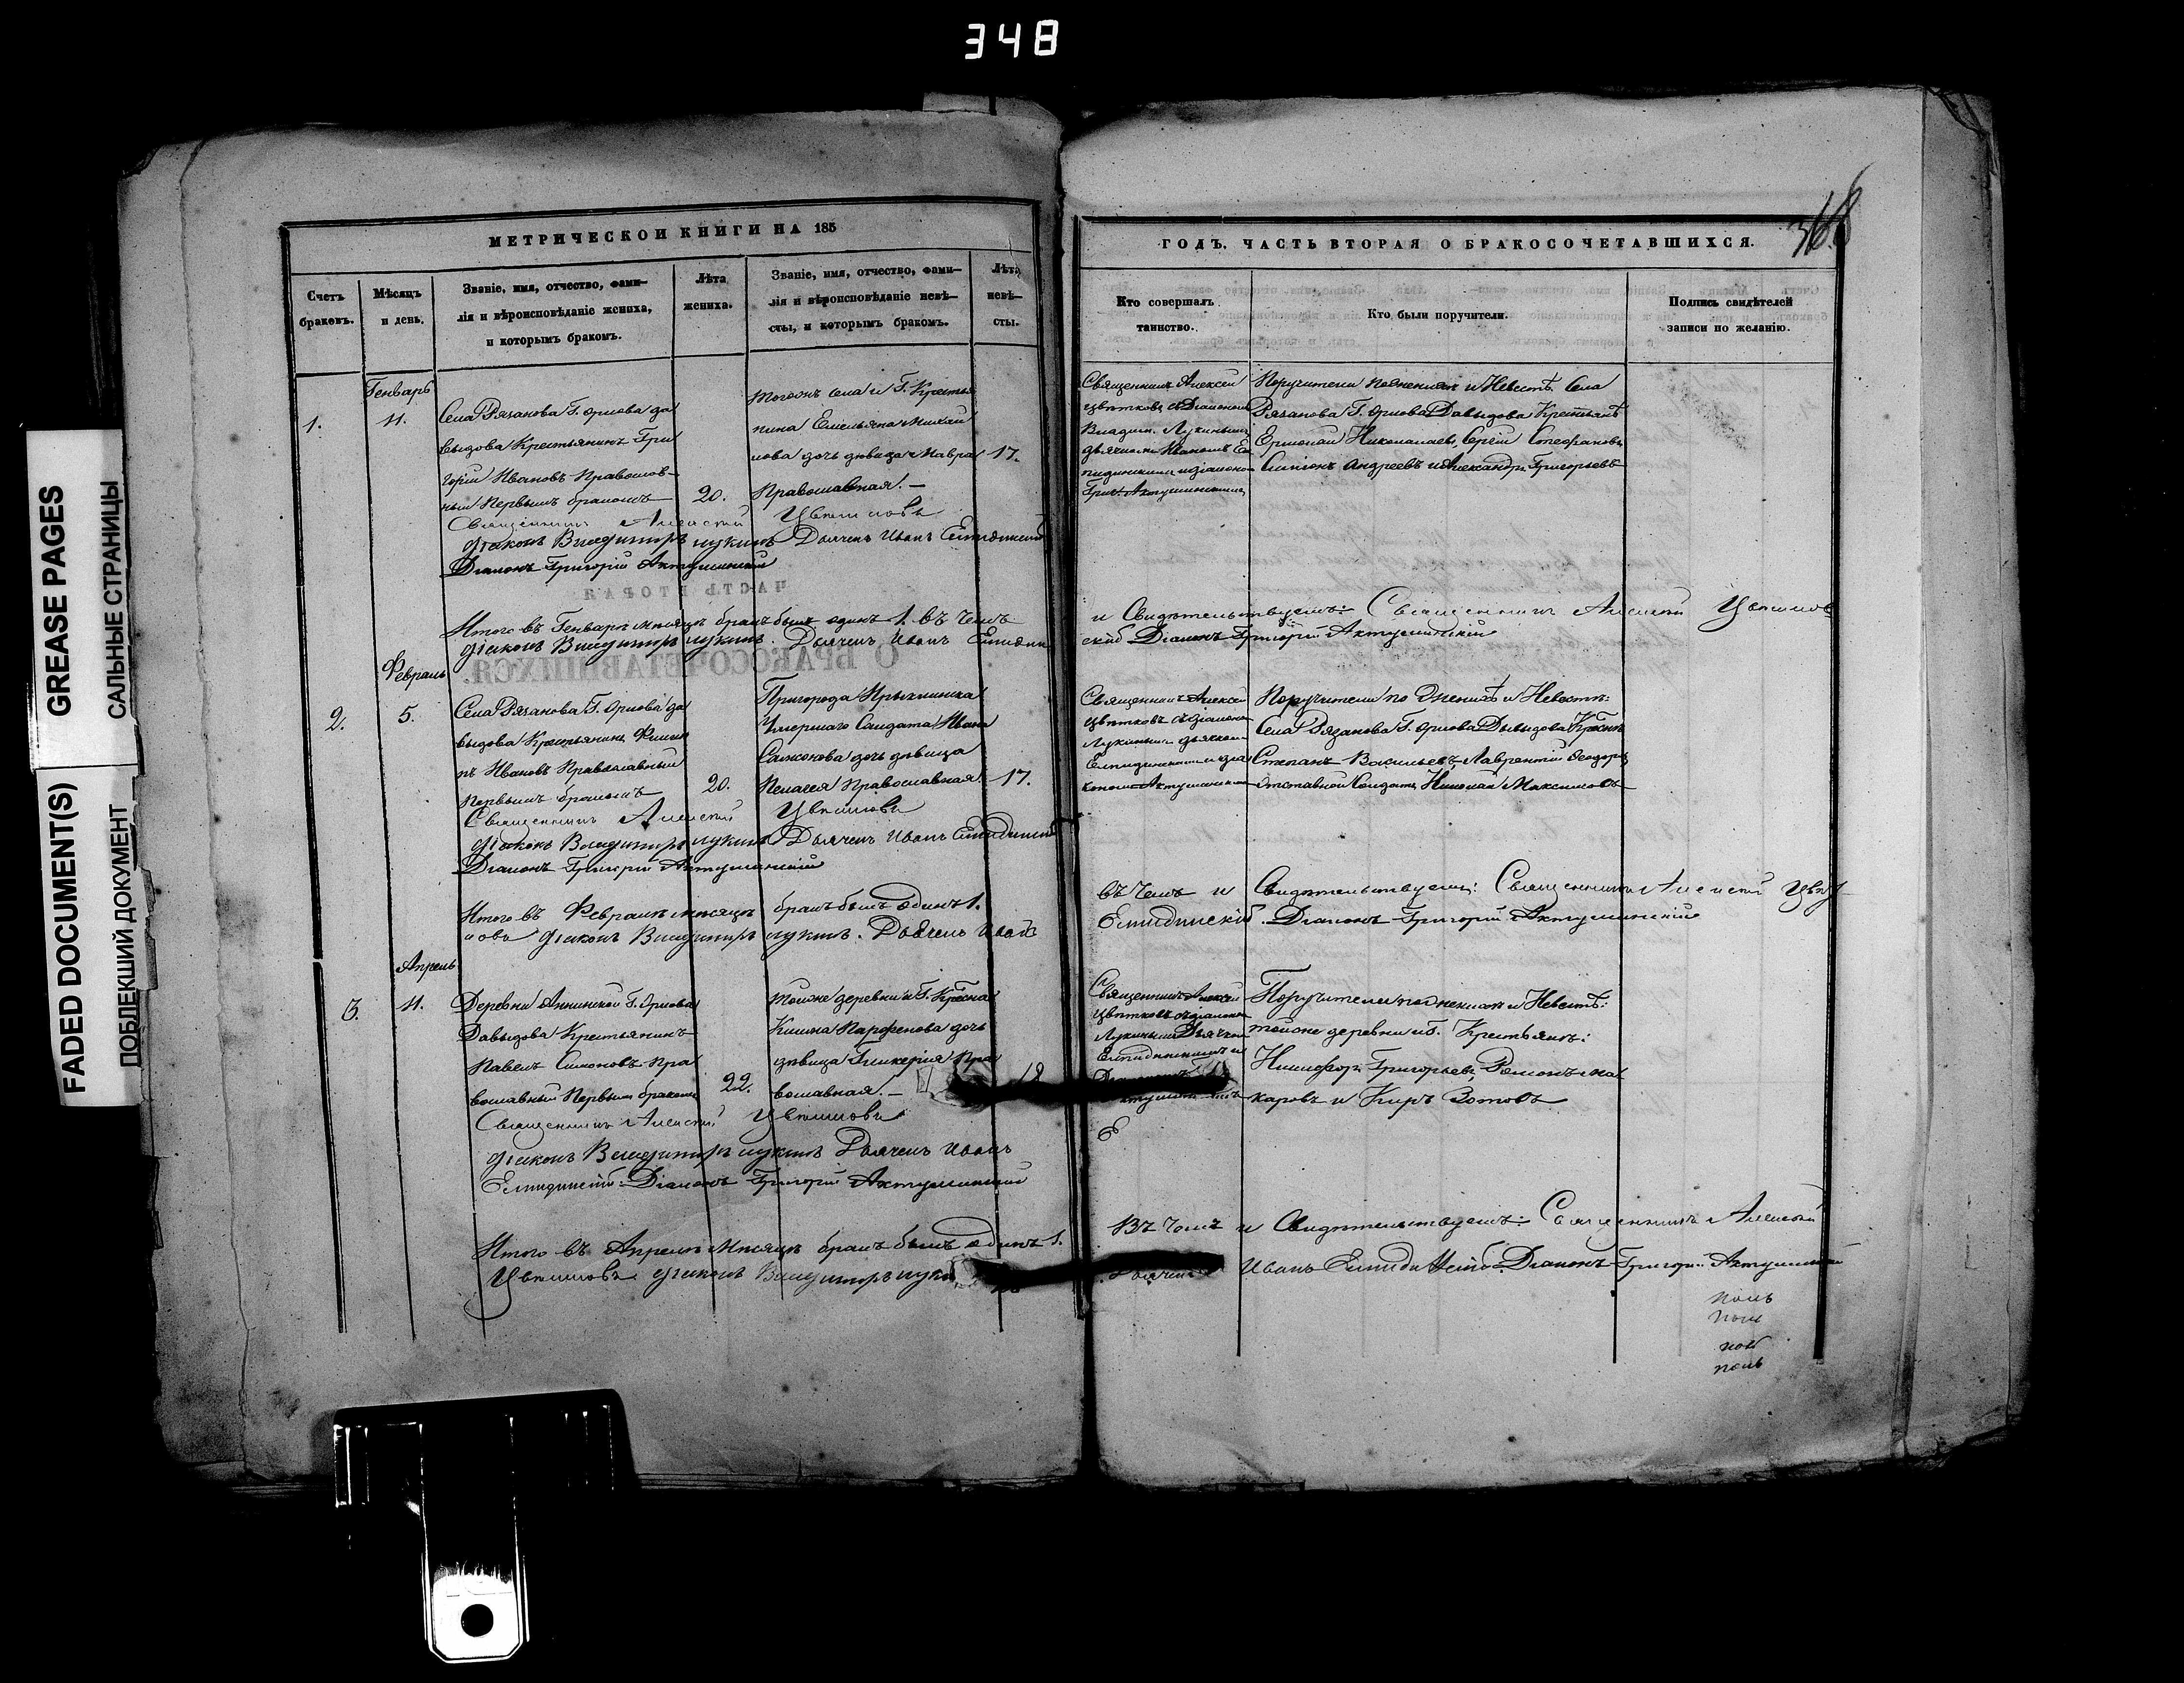 348
GREASE PAGES
САЛЬНЫЕ СТРАНИЦЫ
FADED DOCUMENT(S)
ПОБЛЕКШИЙ ДОКУМЕНТ
МЕТРИЧЕСКОЙ КНИГИ НА 185
Счетъ браковъ.
Мѣсяцъ и день.
Званіе, имя, отчество, фами-
лія и вѣроисповѣданіе жениха,
и которымъ бракомъ.
Лѣта жениха.
Званіе, имя, отчество, фами-
лія и вѣроисповѣданіе невѣ-
сты, и которымъ бракомъ.
Лѣта невѣ-
сты.
Генварь
1.
11.
Села Рязанова Г. Орлова да
выдова Крестьянинъ Гри
горій Ивановъ Православ-
ный Первымъ бракомъ
20.
тогожъ села и Г. Крестья
нина Емельяна Михай
лова дочь дѣвица Мавра
Православная. —
17.
Священникъ Алексѣй Цвѣтковъ
Діаконъ Владиміръ Лукинъ Дьячекъ Иванъ Елпидинскій
Діаконъ Григорій Актушинскій
ЧАСТЬ ВТОРАЯ
Итого въ Генварѣ мѣсяцѣ бракъ былъ одинъ 1. въ чемъ
Діаконъ Владиміръ Лукинъ. Дьячекъ Иванъ Елпидин
О БРАКОСОЧЕТАВШИХСЯ.
Февраль
2.
5.
Села Рязанова Г. Орлова да
выдова Крестьянинъ Филип
пъ Ивановъ Православный
Первымъ бракомъ
20.
Пригорода
Умершаго Солдата Ивана
дочь дѣвица
Пелагея Православная
17.
Священникъ Алексѣй Цвѣтковъ
Діаконъ Владиміръ Лукинъ Дьячекъ Иванъ Елпидинскій
Діаконъ Григорій Актушинскій
Итого въ Февралѣ мѣсяцѣ бракъ былъ одинъ 1.
ковъ Діаконъ Владиміръ Лукинъ. Дьячекъ Иванъ
Апрель
3.
11.
Деревни Аннинской Г. Орлова
Давыдова Крестьянинъ
Павелъ Симоновъ Пра
вославный Первымъ бракомъ
22.
тойже деревни и Г. Кресна
Парфенова дочь
дѣвица Гликерія Пра
вославная. —
18
Священникъ Алексѣй Цвѣтковъ
Діаконъ Владиміръ Лукинъ Дьячекъ Иванъ
Елпидинскій Діаконъ Григорій Актушинскій
Итого въ Апрелѣ мѣсяцѣ бракъ былъ одинъ 1.
Цвѣтковъ Діаконъ Владиміръ Луки
ГОДЪ, ЧАСТЬ ВТОРАЯ О БРАКОСОЧЕТАВШИХСЯ.
Кто совершалъ таинство.
Кто были поручители.
Подпись свидѣтелей записи по желанію.
Священникъ Алексѣй
Цвѣтковъ съ Діакономъ
Владим. Лукинымъ
дьячкомъ Иваномъ Ел
пидинскимъ и діакономъ
Григ. Актушинскимъ
Поручители по женихѣ и Невестѣ: Села
Рязанова Г. Орлова Давыдова Крестьянѣ
Ермолай Николаевъ, Сергій Стефановъ
Симіонъ Андреевъ и Александръ Григорьевъ
и Свидѣтельствуемъ: Священникъ Алексѣй Цвѣтковъ
скій Діаконъ Григорій Актушинскій
Священникъ Алексѣй
Цвѣтковъ съ діакономъ
Лукинымъ дьячкомъ
Елпидинскимъ и діа
кономъ Актушинскимъ
Поручители по Женихѣ и Невѣстѣ:
Села Рязанова Г. Орлова Давыдова Крестьянѣ
Степанъ Васильевъ, Лаврентій Феодоровъ
отставной Солдатъ Николай Максимовъ
въ чемъ и Свидѣтельствуемъ: Священникъ Алексѣй Цвѣт
Елпидинскій. Діаконъ Григорій Актушинскій
Священникъ Алексѣй
Цвѣтковъ съ діакономъ
Лукинымъ Дьячкомъ
Елпидинскимъ и
Поручители по женихѣ и Невестѣ:
тойже деревни и Г. Крестьянѣ:
Никифоръ Григорьевъ, Романъ Ма
каровъ и Киръ Зотовъ
Въ чемъ и Свидѣтельствуемъ: Священникъ Алексѣй
Дьячекъ Иванъ Елпидинскій. Діаконъ Григорій Актушинскій